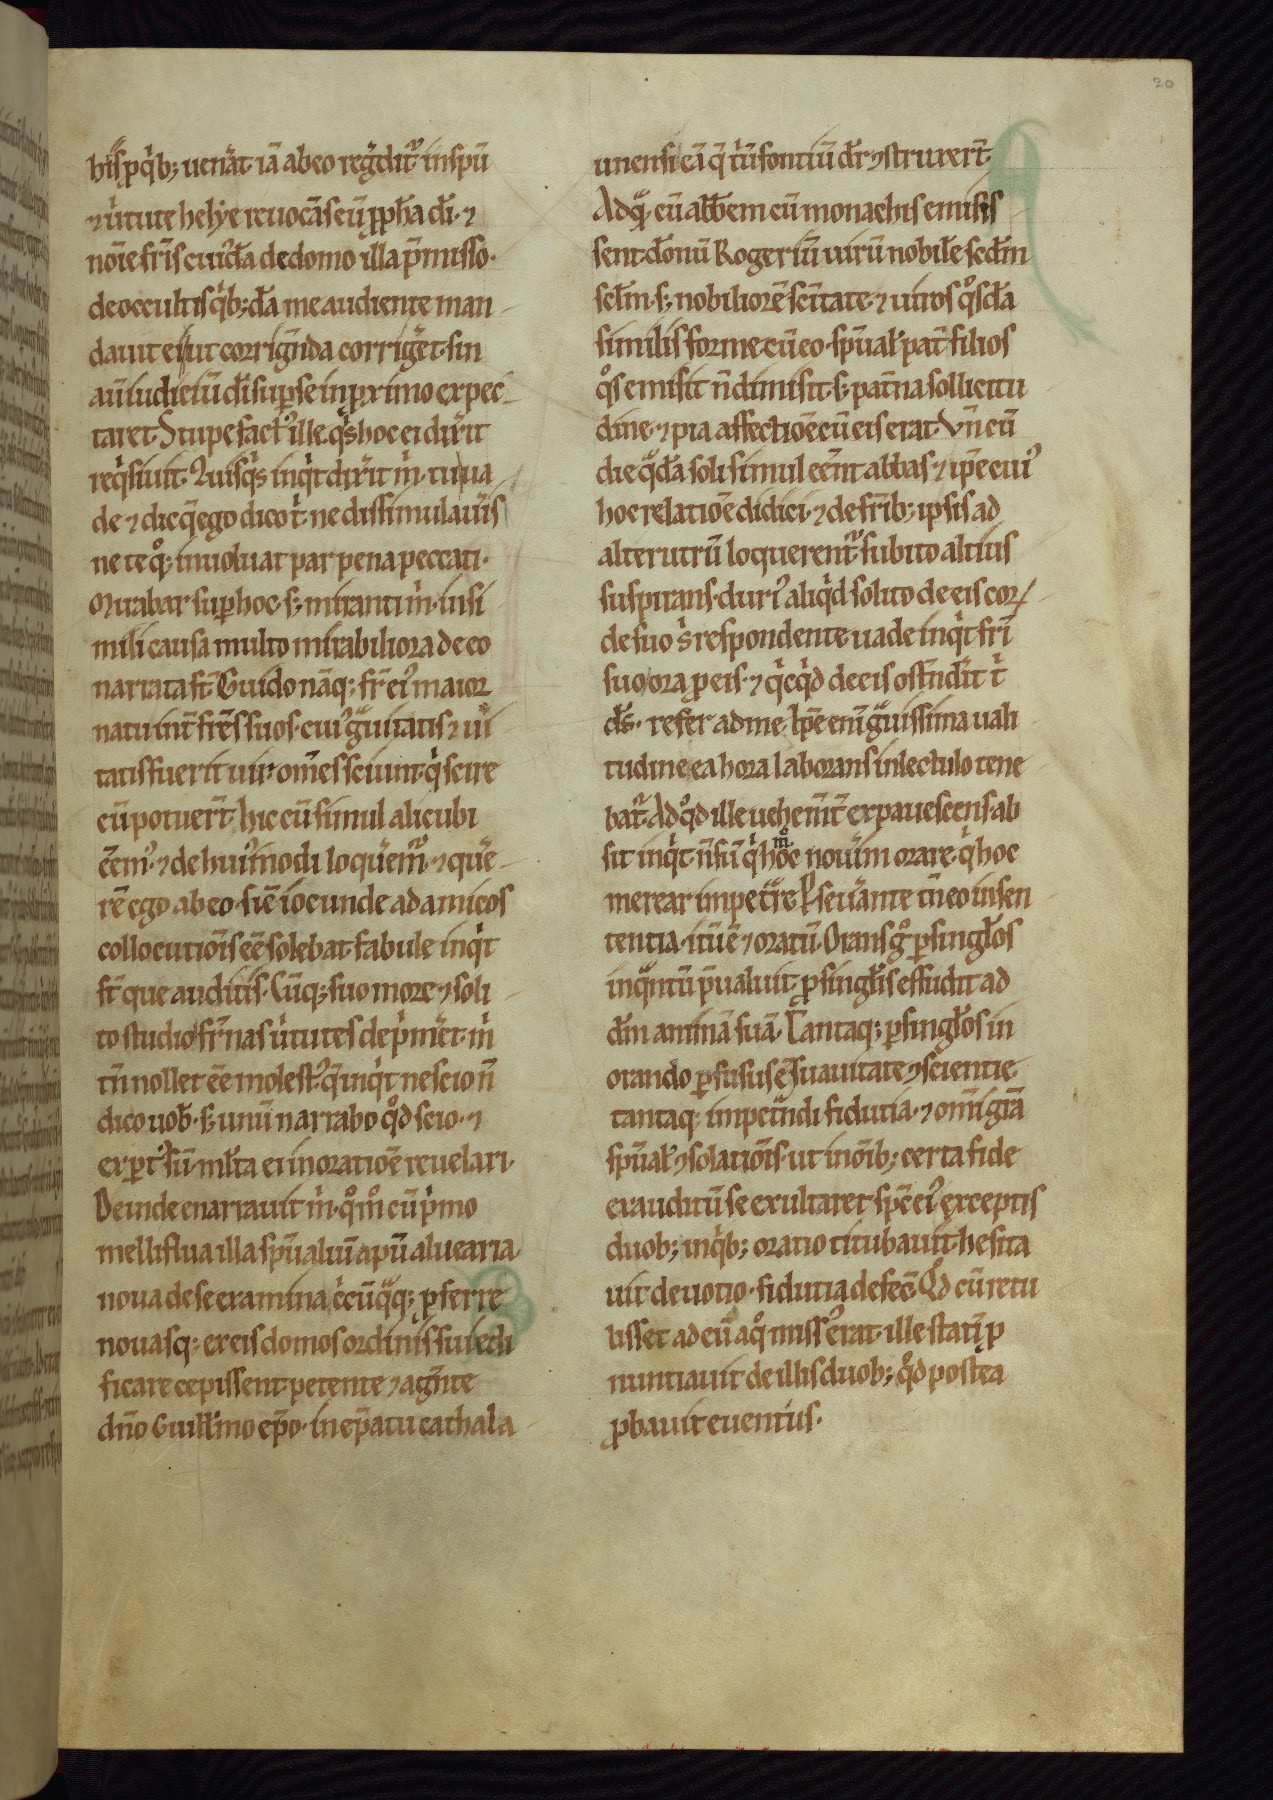 20
hiſ ꝓ qͥb; uenˀat. iā ab eo regˀditᷣ. in sp̄u
⁊ uͥtute helye reuocās eū ꝓph̄a dī. ⁊
nōie fr̄is cuiꝰdā de domo illa p̄misso.
de occultis qͥb;dā me audiente man
dauit ei ut corrigēda corrigˀet. sin
aū iudiciū dī suꝑ se in ꝓximo expec
taret. Stupefactꝰ ille. qͥs hoc ei dixˀit
reqͥsiuit. Quisqͥs inqͥt dixˀit m̍. tu ua
de ⁊ dic q̄ ego dico t̍. ne dissimulauˀis
ne te qͦq; inuoluat par pena peccati.
Mirabar suꝑ hoc. s; miranti m̍. in si
mili causa multo mirabiliora de eo
narrata st̄. Guido nāq; fr̄ eiꝰ maior
natu int̄ fr̄es suos. cuiꝰ gͣuitatis ⁊ uˀi
tatis fuerit uir. om̄es sciunt. qͥ scire
eū potuer̄t. hic cū simul alicubi
eēmꝰ. ⁊ de huiꝰmodi loqͣuemᷣ. ⁊ querˀe
rē ego ab eo. sic̄ iocunde ad amicos
collocutiōis eē solebat. fabule inqͥt
st̄ que auditis. Cūq; suo more ⁊ soli
to studio fr̄nas uͥtutes depͥmˀet. m̍
tn̄ nollet eē molestꝰ. q̄ inqͥt nescio n̄
dico uob̄. s; unū narrabo qͦd scio. ⁊
exꝑtꝰ sū. ml̄ta ei in oratiōe reuelari.
Deinde enarrauit m̍. qͦm̊ cū pͥmo
melliflua illa sp̄ualiū apū aluearia
noua de se examina cˀcūqͣq; ꝓferre
nouasq; ex eis domos ordinis sui edi
ficare cepissent. petente ⁊ agˀnte
dn̄o Guill̄mo ep̄o. in ep̄atu cathala
unensi eā q̄ tˀiū fontiū dr̄ ꝯstruxer̄t.
Ad qͣ. eū abb̄em cū monachis emisis
sent. dōnū Rogeriū uirū nobile scd̄m
scl̄m. s; nobiliorē scītate. ⁊ uiros qͦsdā
similis forme cū eo. sp̄ual' pat̄ filios
qͦs emisit n̄ dimisit. s; pat̄na sollicitu
dine. ⁊ pia affectiōe cū eis erat. Vn̄ cū
die qͣdā soli simul eēnt abbas ⁊ ip̄e cuiꝰ
hoc relatiōe didici. ⁊ de fr̄ib; ipsis ad
alterutrū loquerent᷑. subito altius
suspirans. duriꝰ aliqͥd solito de eis cor
de suo s̍ respondente. uade inqͥt fr̄i
suo. ora ꝓ eis. ⁊ qͥcqͥd de eis ostēdˀit t̍
ds̄. refer ad me. Ip̄e eni gͣuissima uali
tudine ea hora laborans in lectulo tene
bat᷑. Ad qͦd ille uehemt̄ expauescens. ab
sit inqͥt. n̄ sū qͥ hoc mͦ nouˀim orare. qͥ hoc
merear impetͣre. Ꝑseuˀante tn̄ eo in sen
tentia. itū ē ⁊ oratū. Orans gͦ ꝑ singl̄os
inqͣntū p̄ualuit. ꝓ singl̄is effudit ad
dm̄ animā suā. Tantaq; ꝑ singl̄os in
orando ꝑfusus ē suauitate ⁊ scientie
tantaq; impetˀndi fidutia. ⁊ om̄ gr̄a
sp̄ual' ꝯsolatiōis. ut in ōnib; certa fide
exauditū se exultaret sp̄c eiꝰ. exceptis
duob; in qͥb; oratio titubauit. hesita
uit deuotio. fidutia defec̄. Qͦd cū retu
lisset ad eū a qͦ missꝰ erat. ille statī ꝓ
nuntiauit de illis duob; qͦd postea
ꝓbauit euentus.